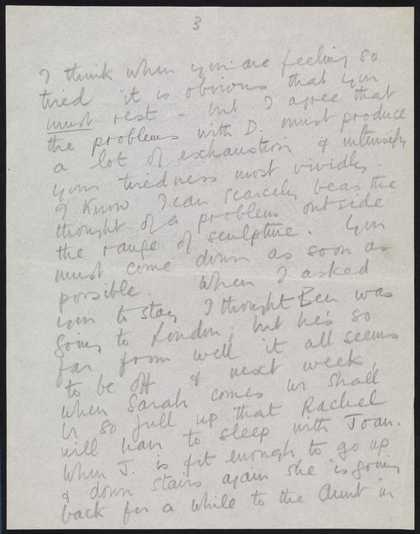 3
I think when you are feeling so
tired it is obvious that you
must rest - but I agree that
the problems with D. must produce
a lot of exhaustion & intensify
your tiredness most vividly.
I know I can scarcely bear the
thought of a problem outside
the range of sculpture. You
must come down as soon as
possible. When I asked
you to stay I thought Ben was
going to London, but he's so
far from well it all seems
to be off & next week,
when Sarah comes we shall
be so full up that Rachel
will have to sleep with Joan.
When J. is fit enough to go up
& down stairs again she is going
back for a while to the Aunt in